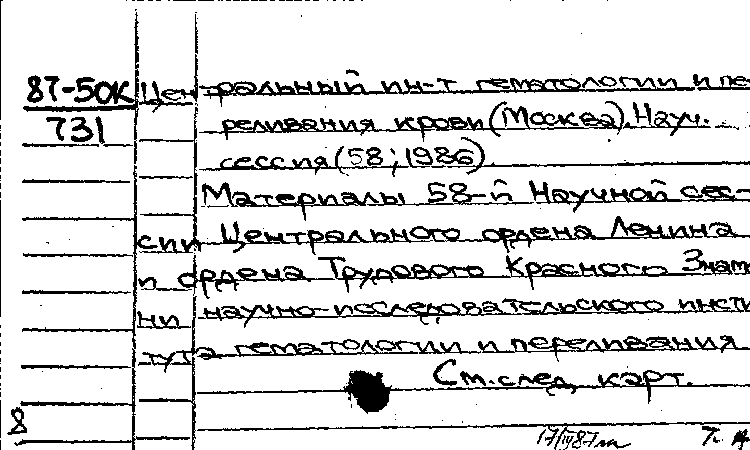 87-50К Центральный ин-т гематологии и пе-
731 реливания крови (Москва). Науч.
сессия (58; 1986).
Материалы 58-й Научной сес-
сии Центрального ордена Ленина
и ордена Трудового Красного Знаме
ни научно-исследовательского инсти
тута гематологии и переливания
См. след. карт.
8